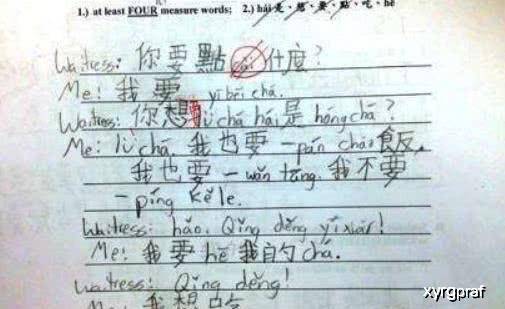 1.) at least FOUR measure words; 2.) hái 是、想、要、點、吃、hē
Waitress: 你要點 cài 什麼?
Me: 我要 yì bēi chá.
Waitress: 你想要 lǜ chá hái 是 hóng chá?
Me: lǜ chá, 我也要一 pán chǎo 飯,
我也要一 wǎn tāng. 我不要
一 píng kě lè.
Waitress: hǎo. Qǐng děng yí xiàr!
Me: 我要 hē 我的 chá.
Waitress: Qǐng děng!
Me: 我想吃
xyrgpraf